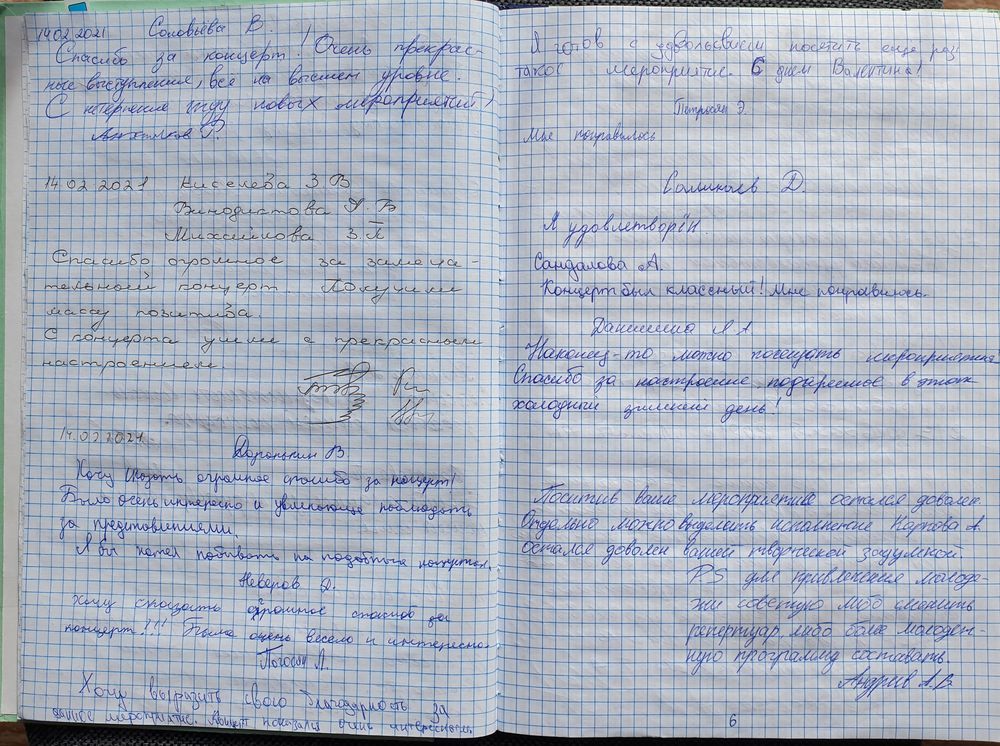 14.02.2021 Соловьёва В.
Спасибо за концерт! Очень прекрас-
ные выступления, всё на высшем уровне.
С нетерпение жду новых мероприятий)
14.02.2021 Киселёва З.В
Винодистова А.В
Михайлова З.П
Спасибо огромное за замеча-
тельный концерт. Получили
массу позитива.
С концерта ушли с прекрасным
настроением.
14.02.2021
Доронькин В
Хочу сказать огромное спасибо за концерт!
Было очень интересно и увлекающе наблюдать
за представлениями.
Я бы хотел побывать на подобных концертах.
Неверов Д.
Хочу сказать огромное спасибо за
концерт!!! Было очень весело и интересно.
Погосян Л.
Хочу выразить свою благодарность за
данное мероприятие. Концерт показался очень интересным.
Я готов с удовольствием посетить ещё раз
такое мероприятие. С днём Валентина!
Петросян Э.
Мне понравилось
Саликаев Д.
Я удовлетворён.
Сандалова А.
Концерт был классный! Мне понравилось.
Данилина Л А
Наконец-то можно посещать мероприятия
Спасибо за настроение подаренное в этот
холодный зимний день!
Поситив ваше мероприятие остался доволен.
Отдельно можно выделить исполнение Карпова А.
остался доволен вашей творческой задумкой.
PS для привлечения молоде-
жи советую либо сменить
репертуар либо более молодеж-
ную программу составать.
Андреев А.В
6